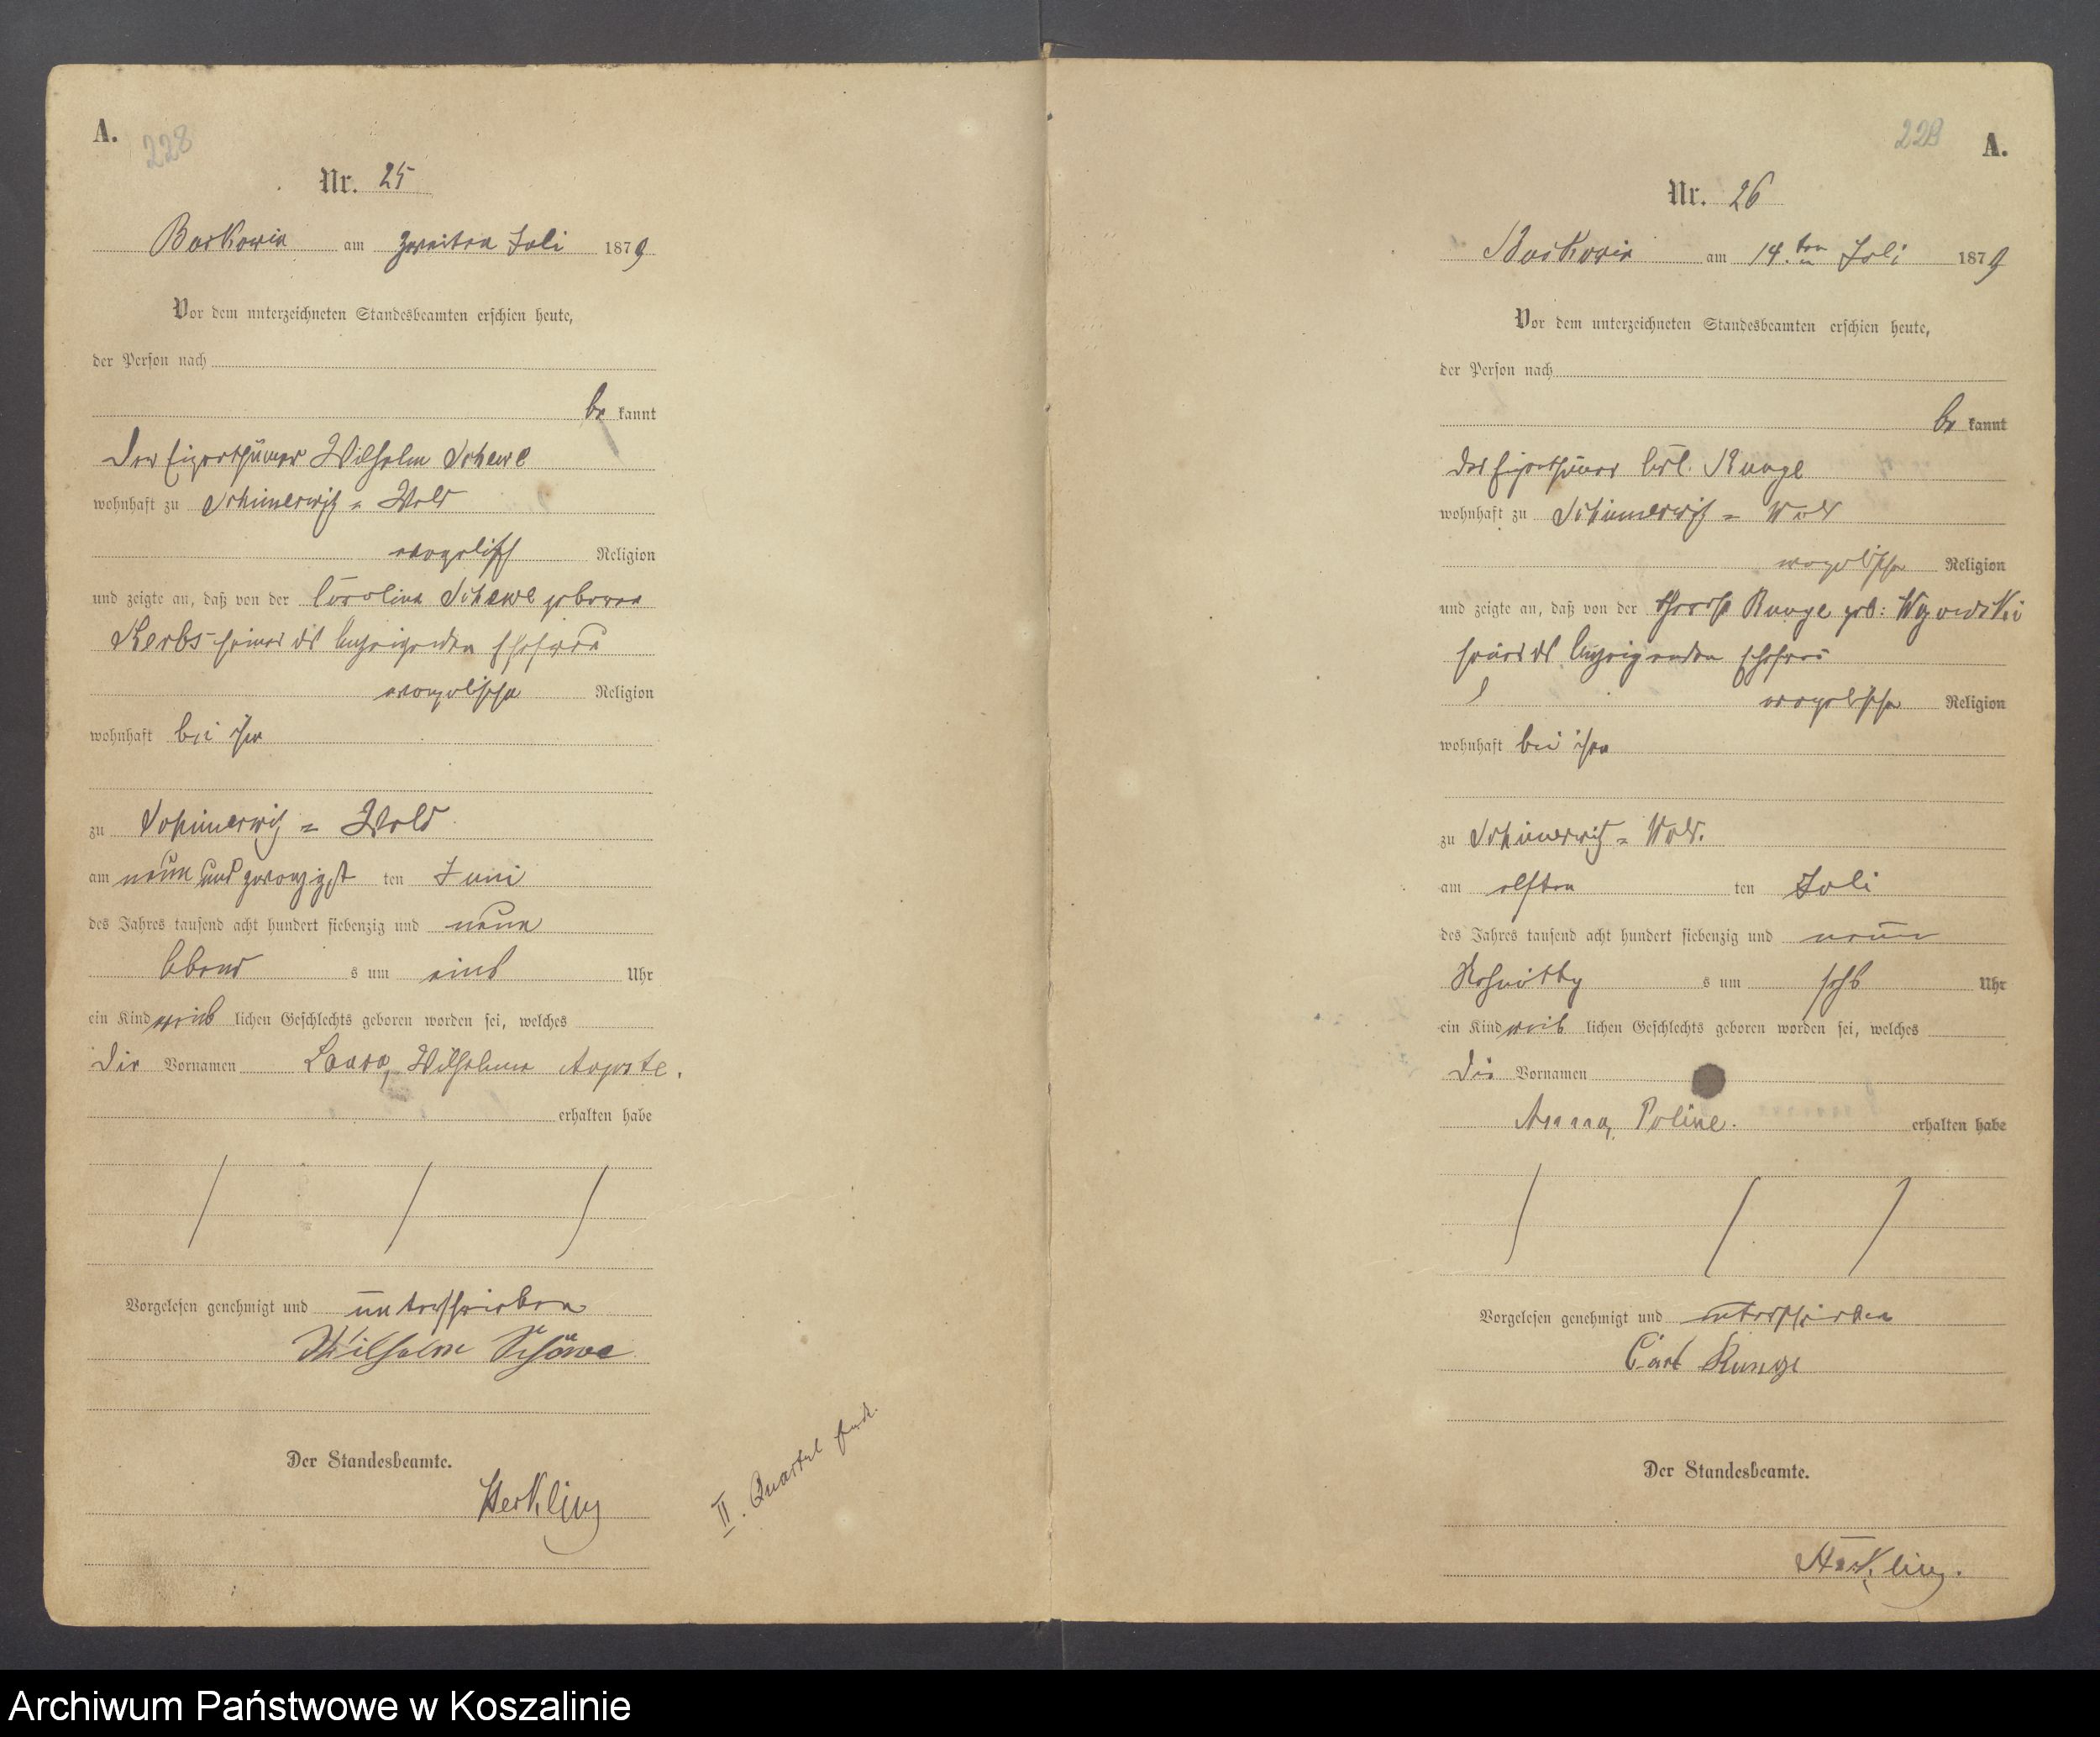 A.
228
Nr. 25
Borkowin am zweiten Juli 1879
Vor dem unterzeichneten Standesbeamten erschien heute,
der Person nach
be kannt
der Eigenthümer Wilhelm Schewe
wohnhaft zu Schimerwitz = Wold
evangelisch Religion
und zeigte an, daß von der Caroline Schewe geborne
Kerbs seiner des Anzeigenden Ehefrau
evangelischer Religion
wohnhaft bei ihm
zu Schimerwitz = Wold
am neun und zwanzigst ten Juni
des Jahres tausend acht hundert siebenzig und neun
Abend s um eins Uhr
ein Kind weib lichen Geschlechts geboren worden sei, welches
die Vornamen Laura, Wilhelmine Auguste.
erhalten habe
Vorgelesen genehmigt und unterschrieben
Wilhelm Schöwe
Der Standesbeamte.
Herkling
II. Quartal
A.
Nr. 26
Borkowin am 14.ten Juli 1879
Vor dem unterzeichneten Standesbeamten erschien heute,
der Person nach
be kannt
der Eigenthümer Carl Runge
wohnhaft zu Schimerwitz = Wold
evangelischer Religion
und zeigte an, daß von der Runge geb:
seiner des Anzeigenden Ehefrau
evangelischer Religion
wohnhaft bei ihm
zu Schimerwitz = Wold.
am elften ten Juli
des Jahres tausend acht hundert siebenzig und neun
s um Uhr
ein Kind weib lichen Geschlechts geboren worden sei, welches
die Vornamen
Anna, Poline. erhalten habe
Vorgelesen genehmigt und unterschrieben
Carl Runge
Der Standesbeamte.
Herkling.
Archiwum Państwowe w Koszalinie